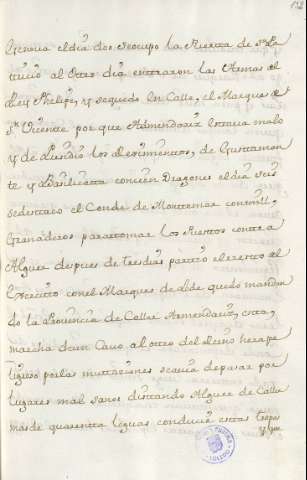 132
el dia dos se ocupo la Puerta de
al otro dia entraron las Armas del
Rey Phelipe, y se quedó En Caller, el Marques de
Sn. Vicente por que Armendariz Estava malo
y de los Destacamentos, de
te y con cien Dragones el dia seis
se destaco el Conde de Montemar con mil,
Granaderos para tomar los Puestos contra
Alguer despues de tres dias partio el resto del
Exercito con el Marques de Lede quedo mandan
do la Provincia de Caller Armendariz, esta,
marcha de un Cavo al otro del Reino hera pe
ligroso por las mutaciones se avia de pasar por
lugares mal sanos distando Alguer de Caller
mas de quarenta leguas conducir estas tropas
y que
TOLEDO